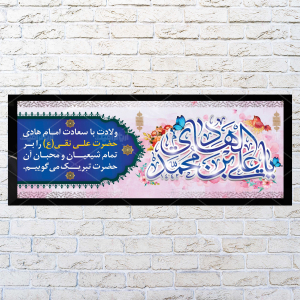 ولادت با سعادت امام هادی
حضرت علی نقی(ع) را بر
تمام شیعیان و محبان آن
حضرت تبریک می‌گوییم.
یا علی بن محمد الهادی